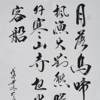 月落烏啼
楓漁火對愁眠
外寒山寺夜半
客船